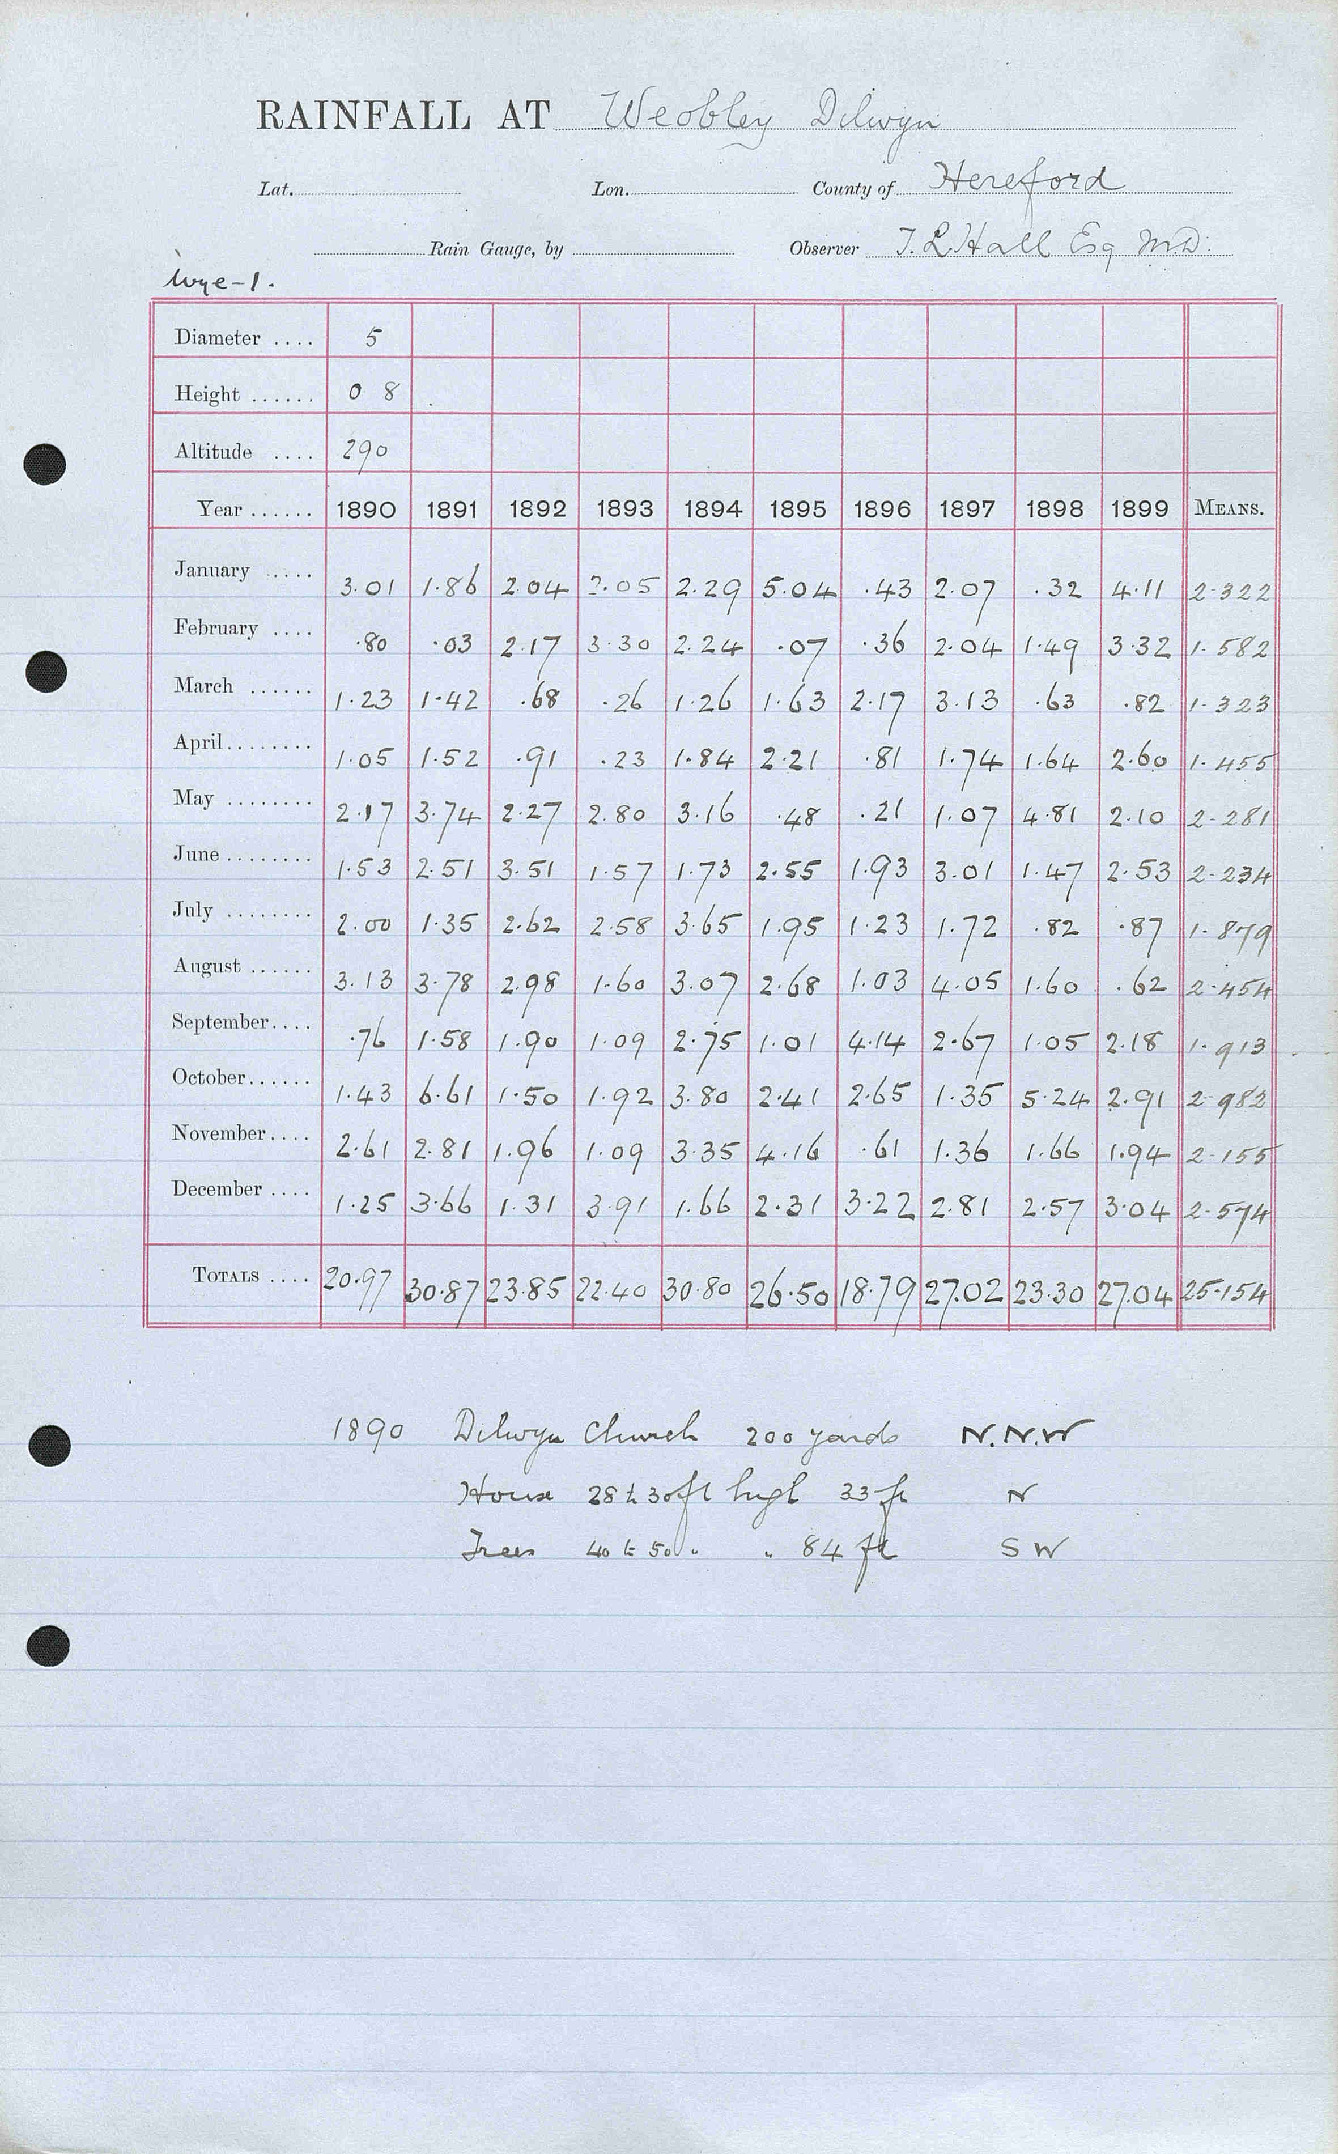 RAINFALL AT Weobley Dilwyn
Lat. Lon. County of Hereford
Rain Gauge, by Observer T. L. Hall Esq M.D.
Wye-1.
Diameter .... 5
Height ...... 0 8
Altitude .... 290
Year ...... 1890 1891 1892 1893 1894 1895 1896 1897 1898 1899 MEANS.
January ..... 3.01 1.86 2.04 2.05 2.29 5.04 .43 2.07 .32 4.11 2.322
February .... .80 .03 2.17 3.30 2.24 .07 .36 2.04 1.49 3.32 1.582
March ...... 1.23 1.42 .68 .26 1.26 1.63 2.17 3.13 .63 .82 1.323
April........ 1.05 1.52 .91 .23 1.84 2.21 .81 1.74 1.64 2.60 1.455
May ........ 2.17 3.74 2.27 2.80 3.16 .48 .21 1.07 4.81 2.10 2.281
June ........ 1.53 2.51 3.51 1.57 1.73 2.55 1.93 3.01 1.47 2.53 2.234
July ........ 2.00 1.35 2.62 2.58 3.65 1.95 1.23 1.72 .82 .87 1.879
August ...... 3.13 3.78 2.98 1.60 3.07 2.68 1.03 4.05 1.60 .62 2.454
September.... .76 1.58 1.90 1.09 2.75 1.01 4.14 2.67 1.05 2.18 1.913
October...... 1.43 6.61 1.50 1.92 3.80 2.41 2.65 1.35 5.24 2.91 2.982
November.... 2.61 2.81 1.96 1.09 3.35 4.16 .61 1.36 1.66 1.94 2.155
December .... 1.25 3.66 1.31 3.91 1.66 2.31 3.22 2.81 2.57 3.04 2.574
TOTALS .... 20.97 30.87 23.85 22.40 30.80 26.50 18.79 27.02 23.30 27.04 25.154
1890 Dilwyn Church 200 yards N.N.W
House 28 to 30 ft high 33 ft N
Trees 40 to 50 " " 84 ft S W